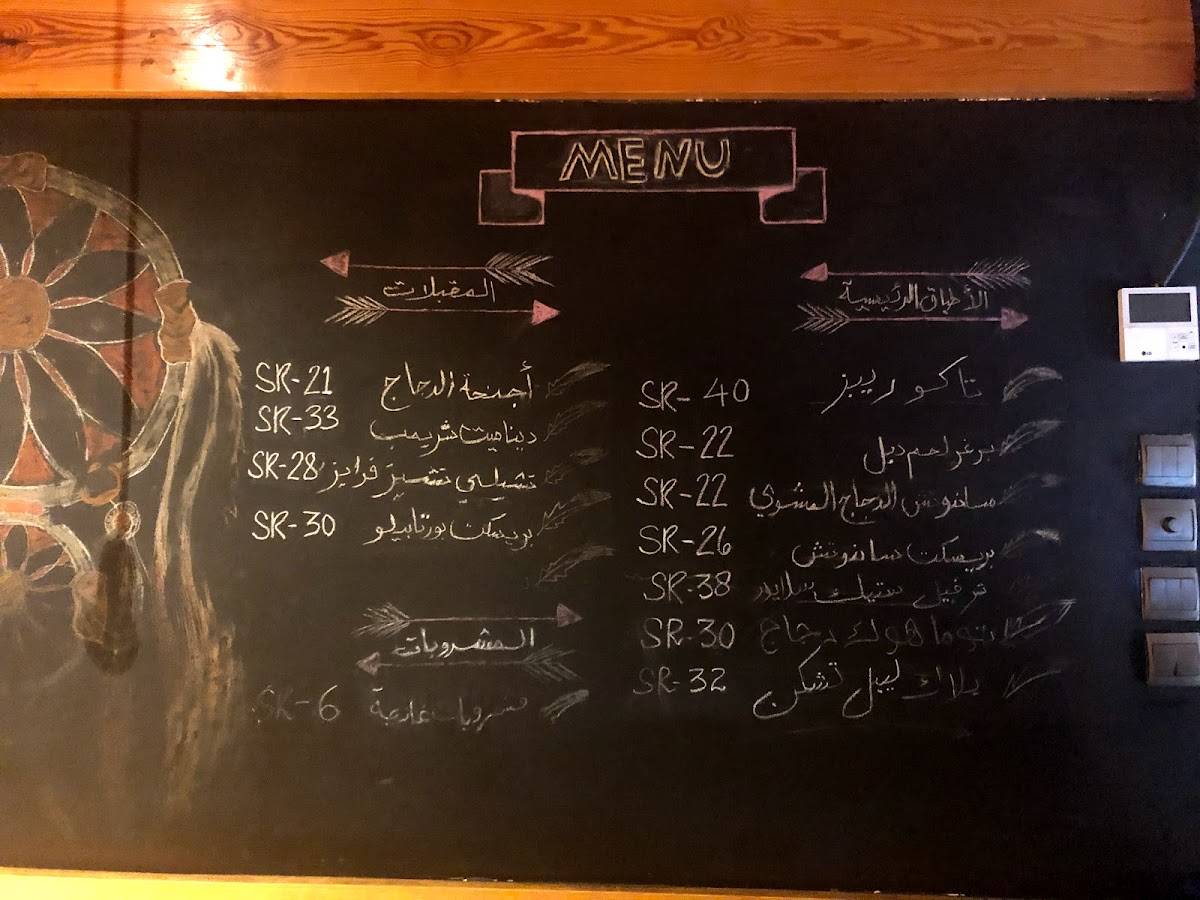 MENU
الأطباق الرئيسية
تاكو ريبز SR-40
برغر لحم دبل SR-22
ساندوتش الدجاج المشوي SR-22
بريسكت ساندوتش SR-26
ترفيل ستيك سلايدر SR-38
توما هوك دجاج SR-30
بلاك ليبل تشكن SR-32
المقبلات
أجنحة الدجاج SR-21
ديناميت شريمب SR-33
تشيلي تشيز فرايز SR-28
بريسكت بورتابيلو SR-30
المشروبات
مشروبات غازية SR-6
LG